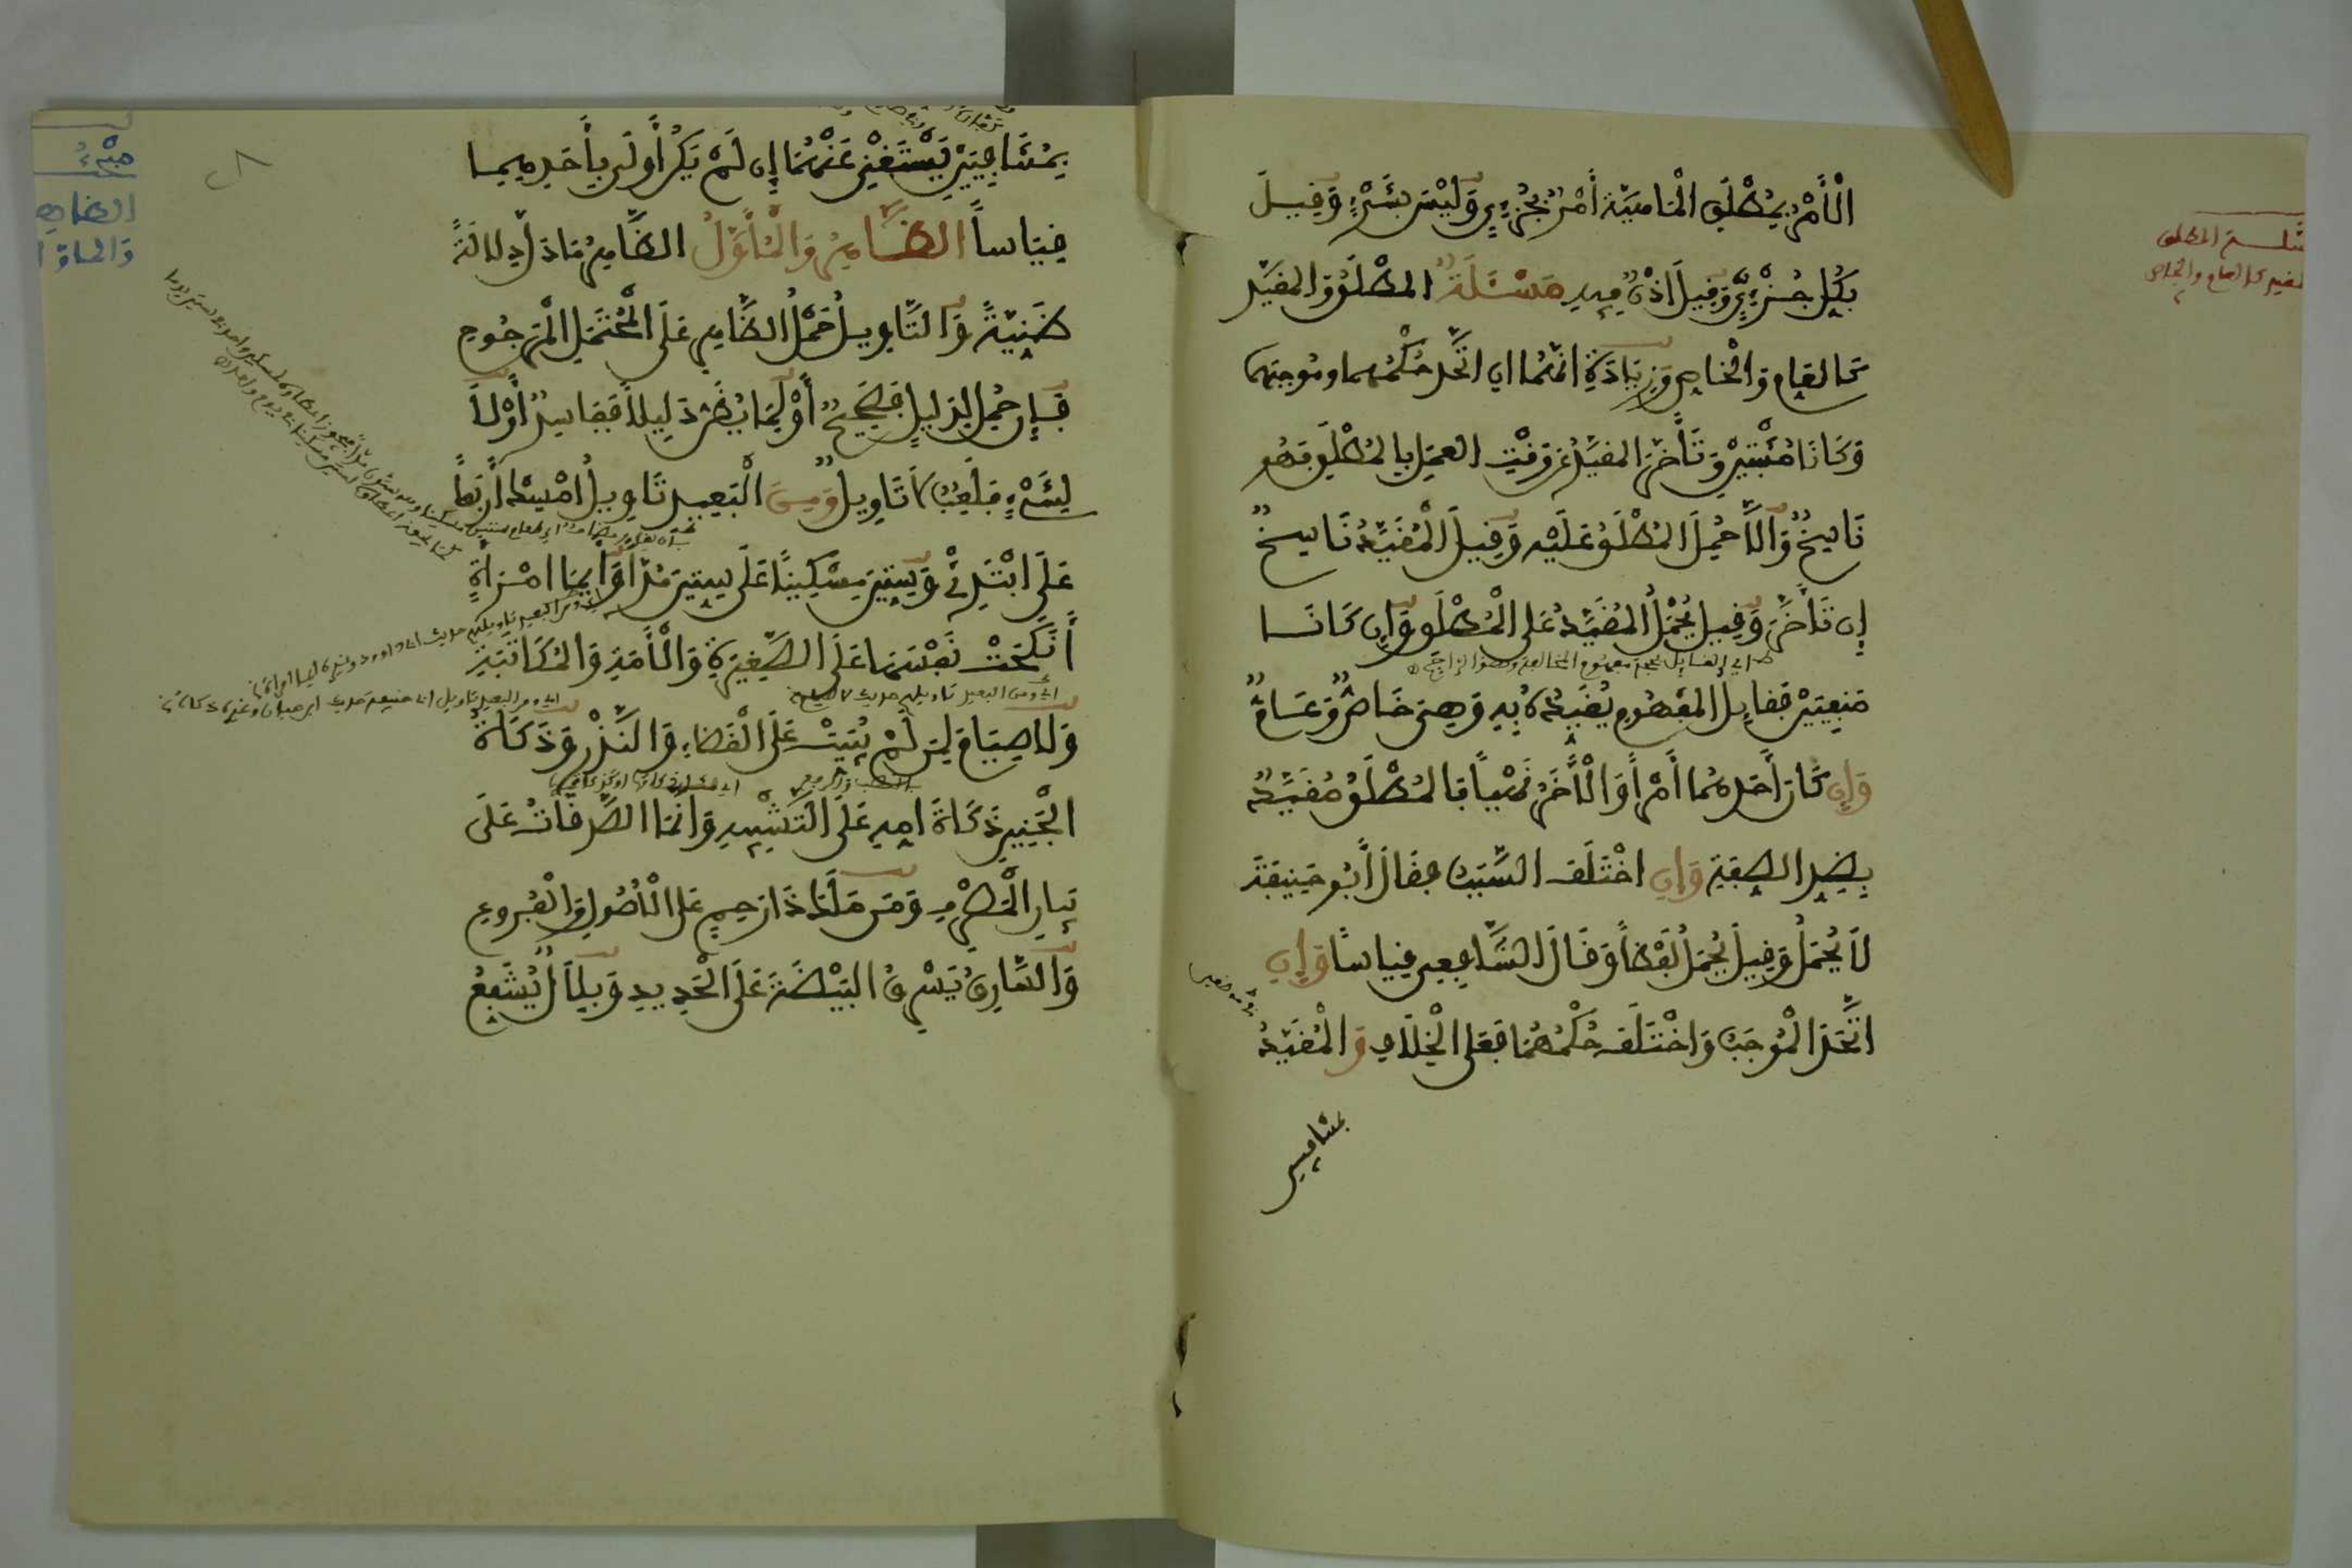 الْأَمْرُ بِمُطْلَقِ الْمَاهِيَّةِ أَمْرٌ بِجُزْءِيٍّ وَلَيْسَ بِشَيْءٍ وَقِيلَ
بِكُلِّ جُزْءِيٍّ وَقِيلَ إِذْنٌ فِيهِ مَسْئَلَةٌ المُطْلَقُ وَالمُقَيَّدُ
كَالعَامِ وَالْخَاصِ وَزِيَادَةِ انَّهُمَا اِن اتَّحَدَ حُكْمُهُمَا وَمُوجِبُهُمَا
وَكَانَا مُثْبَتَيْنِ وَتَأَخَّرَ المُقَيَّدُ عَنْ وَقْتِ العَمَلِ بِالمُطْلَقِ فَهُوَ
نَاسِخٌ وَإِلَّا حُمِلَ المُطْلَقُ عَلَيْهِ وَقِيلَ الْمُقَيَّدُ نَاسِخٌ
إِن تَأَخَّرَ وَقِيلَ يُحْمَلُ المُقَيَّدُ عَلَى الْمُطْلَقِ وَإِن كَانَا
اي القايل بحجية مفهوم المخالفة وهو الراجح
مَنفِيَّيْنِ فَقَايِلُ المَفْهُومِ يُقَيِّدُهُ بِهِ وَهِىَ خَاصٌّ وَعَامٌّ
وَإِن كَانَ أَحَدُهُمَا أَمْراً وَالْأَخَرُ نَهْياً فَالمُطْلَقُ مُقَيَّدٌ
بِضِدِّ الصِّفَةِ وَإِنِ اخْتَلَفَ السَّبَبُ فَقَالَ أَبُو حَنِيفَةَ
لَا يُحْمَلُ وَقِيلَ يُحْمَلُ لَفْظاً وَقَالَ الشَّافِعِي قِيَاسًا وَإِنِ
اتَّحَدَ الْمُوجَبُ وَاخْتَلَفَ حُكْمُهُمَا فَعَلَى الْخِلَافِ وَالْمُقَيَّدُ
بمتنافيين
المطلق
كالعام والخاص
بِمُتَنَافِيَيْنِ يَسْتَغْنِي عَنْهُمَا إِن لَمْ يَكُنْ أَوْلَى بِأَحَدِهِمَا
قِيَاساً الظَّاهِرُ وَالْمُأَوَّلُ الظَّاهِرُ مَا دَلَّ دِلَالَةً
ظَنِيَّةً وَالتَّاوِيلُ حَمْلُ الظَّاهِرِ عَلَى الْمُحْتَمَلِ الْمَرْجُوحِ
فَإِن حُمِلَ لِدَلِيلٍ فَصَحِيحٌ أَوْ لِمَا يُظَنُّ دَلِيلاً فَفَاسِدٌ أَوْ لَا
لِشَيْءٍ فَلَعِبٌ لَا تَاوِيلٌ وَمِنَ الْبَعِيدِ تَاوِيلُ أَمْسِكْ أَرْبَعاً
عَلَى ابْتَدِئْ وَسِتِّينَ مِسْكِينًا عَلَى سِتِّينَ مُدّاً وَأَيُّمَا امْرَأَةٍ
أَنكَحَتْ نَفْسَهَا عَلَى الصَّغِيرَةِ وَالْأَمَةِ وَالمُكَاتَبَةِ
اي ومن البعيد تاويلهم حديث لا صيام
اي ومن البعيد تاويل ابي حنيفة حديث ابن حبان وغيره ذكاة
وَلَا صِيَامَ لِمَن لَمْ يُبَيِّتْ عَلَى الْقَضَاءِ وَالنَّذْرِ وَذَكَاةُ
بالنصب والرفع
الْجَنِينِ ذَكَاةُ امِهِ عَلَى التَّشْبِيهِ وَانَّمَا الصَّدَقَاتُ عَلَى
بَيَانِ الْمَصْرِفِ وَمَن مَلَكَ ذَا رَحِمٍ عَلَى الْأُصُولِ وَالْفُرُوعِ
وَالسَّارِقُ يَسْرِقُ البَيْضَةَ عَلَى الْحَدِيدِ وَبِلَالٌ يُشَفِّعُ
مبحث
الظاهر
والماول